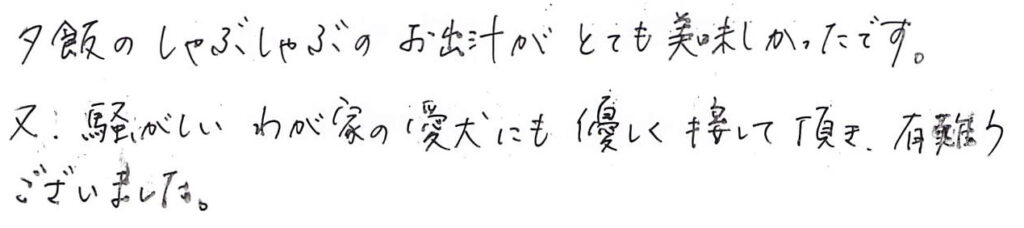 夕飯のしゃぶしゃぶのお出汁がとても美味しかったです。
又、騒がしいわが家の愛犬にも優しく接して頂き、有難う
ございました。